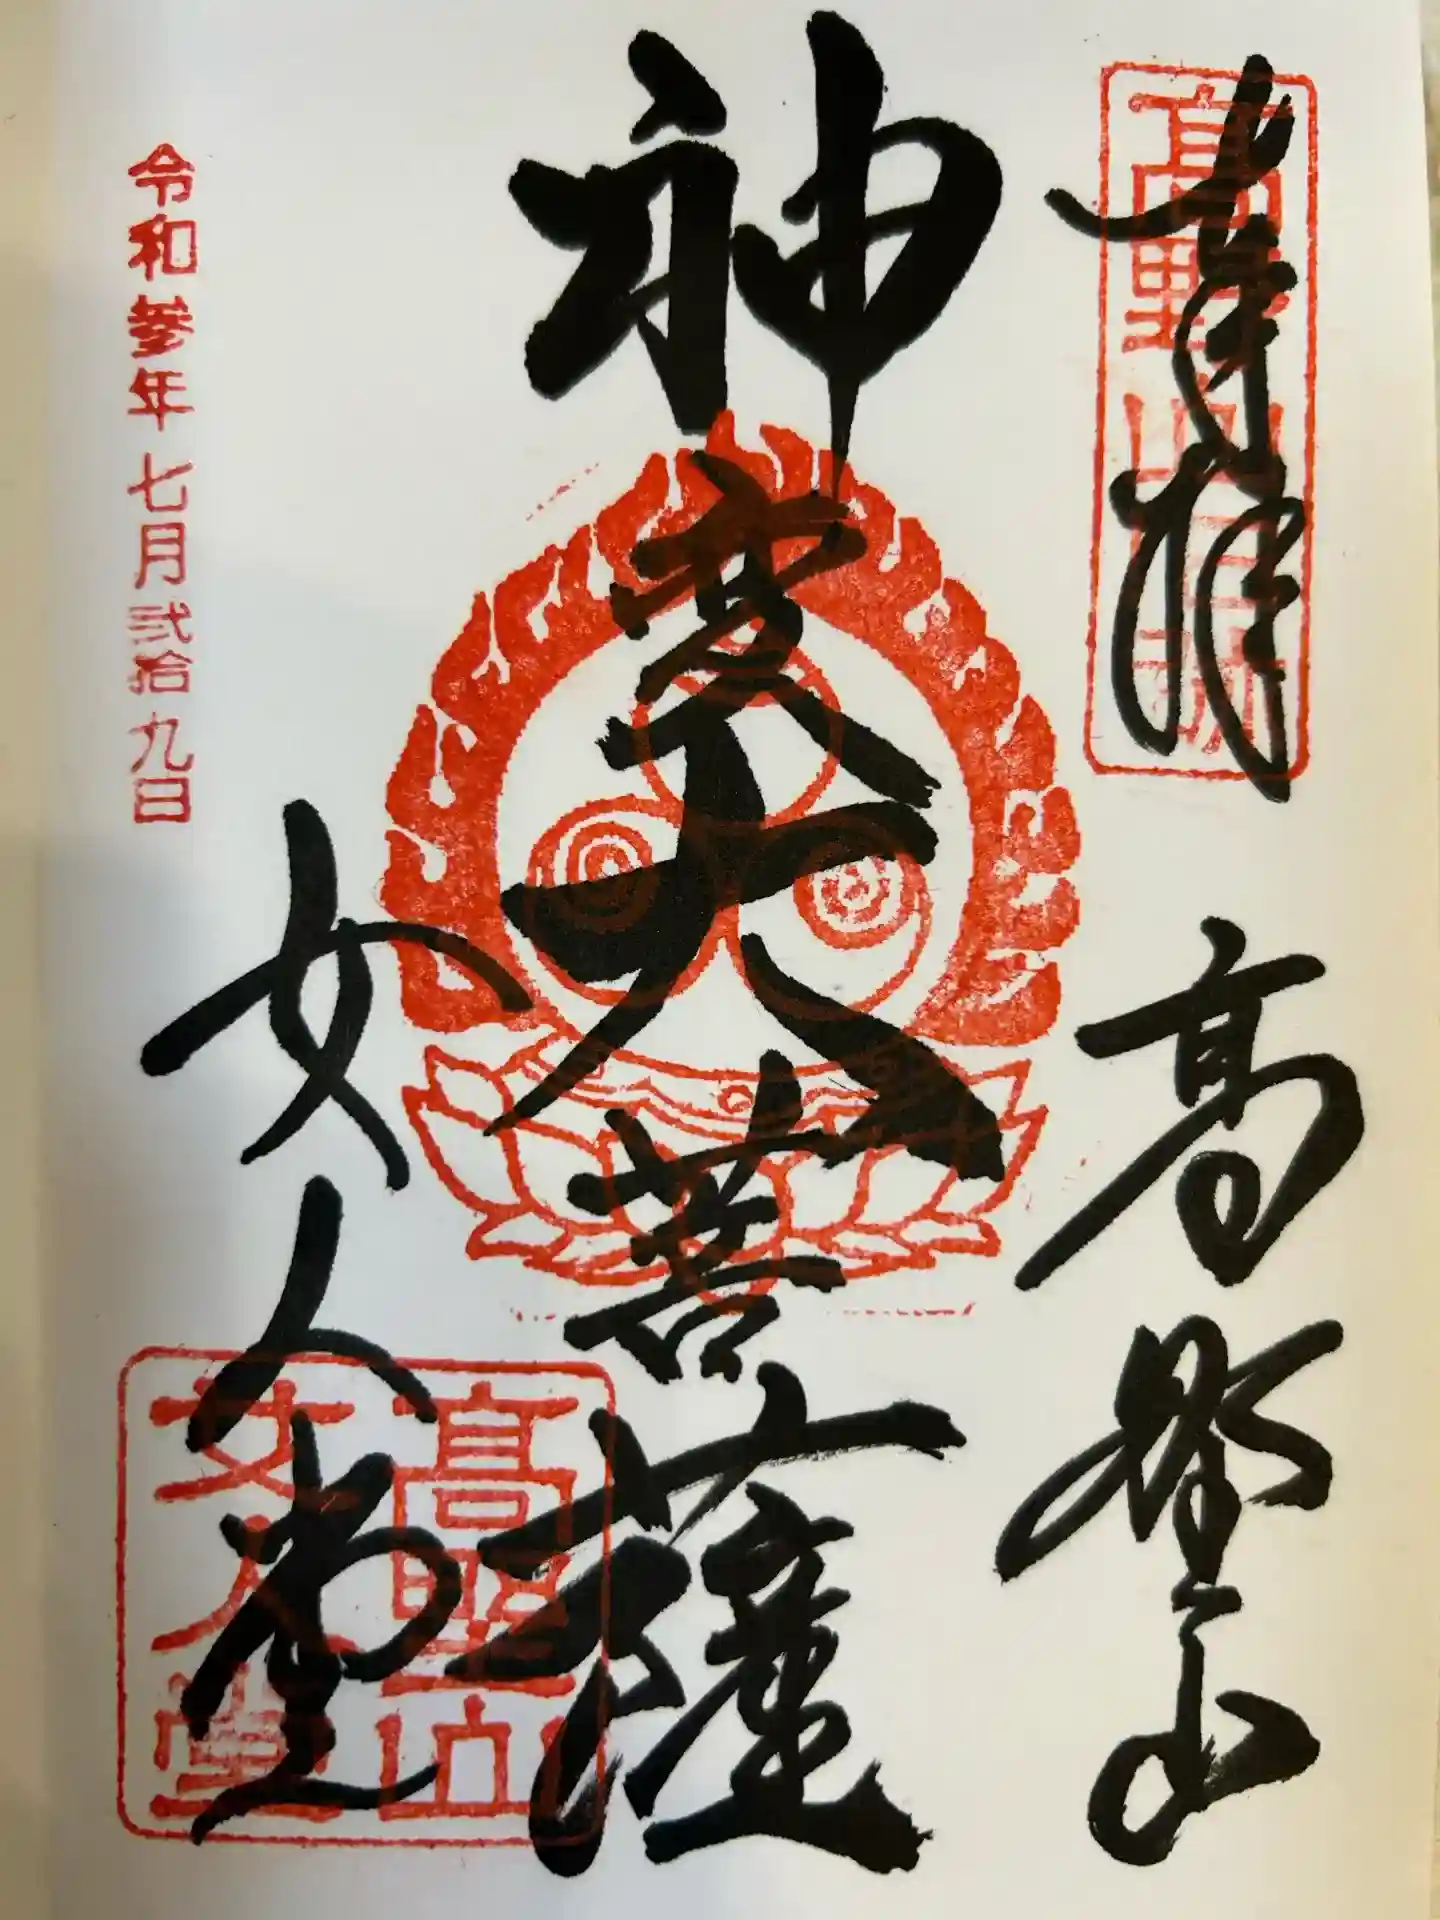 奉拝
高野山
神変大菩薩
女人堂
令和参年七月弐拾九日
高野山
女人堂